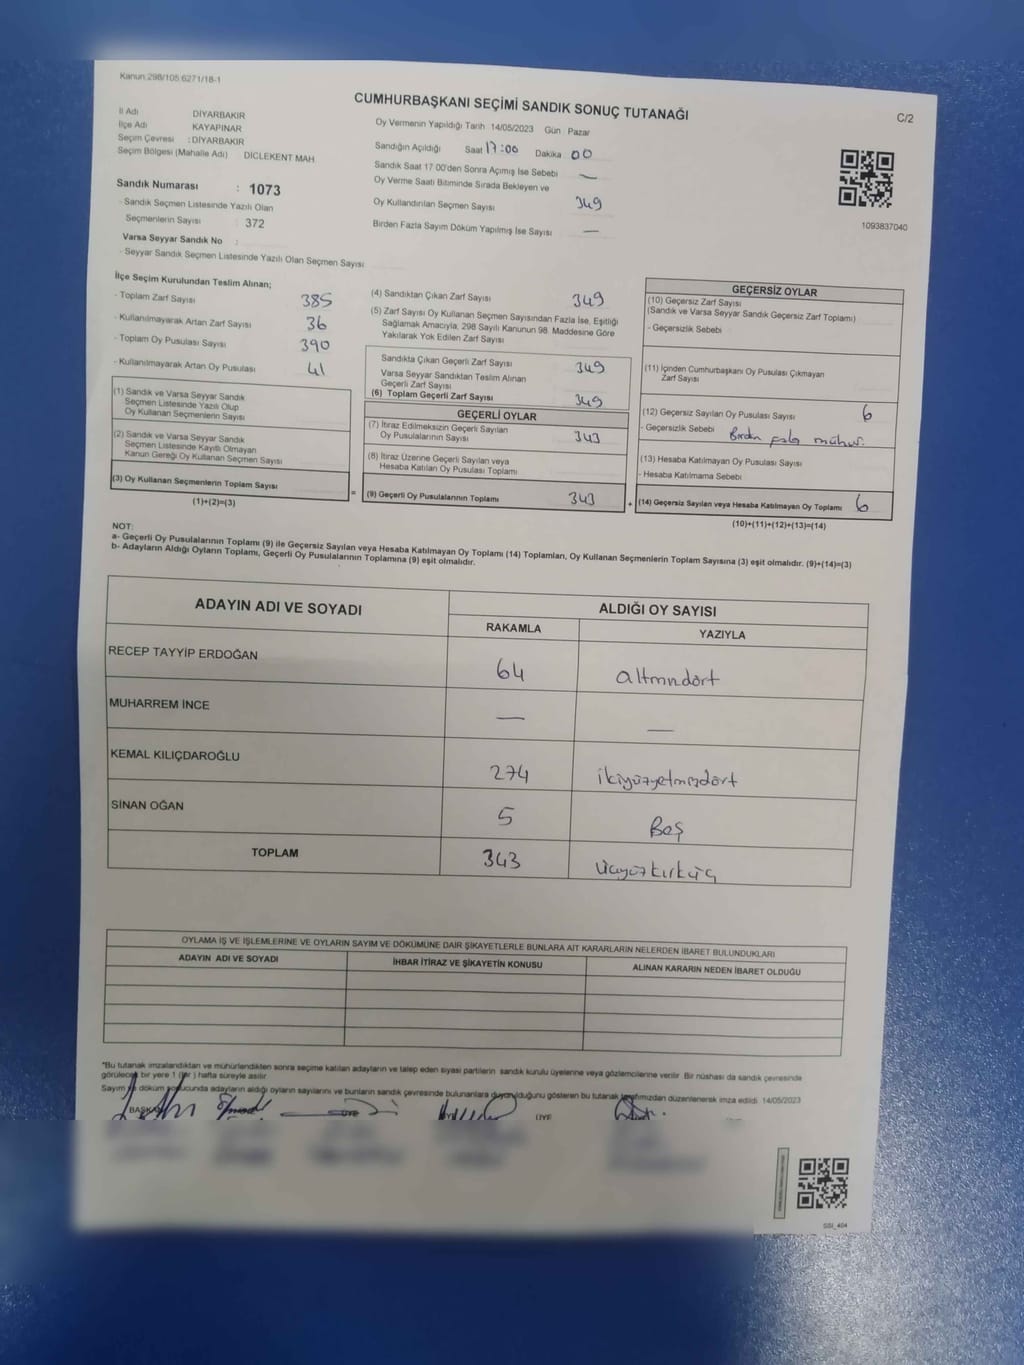 Kanun:298/105 6271/18-1
CUMHURBAŞKANI SEÇİMİ SANDIK SONUÇ TUTANAĞI
C/2
İl Adı DİYARBAKIR
İlçe Adı KAYAPINAR
Seçim Çevresi : DİYARBAKIR
Seçim Bölgesi (Mahalle Adı) DİCLEKENT MAH.
Sandık Numarası : 1073
- Sandık Seçmen Listesinde Yazılı Olan
Seçmenlerin Sayısı : 372
Varsa Seyyar Sandık No :
- Seyyar Sandık Seçmen Listesinde Yazılı Olan Seçmen Sayısı
Oy Vermenin Yapıldığı Tarih 14/05/2023 Gün Pazar
Sandığın Açıldığı Saat 17:00 Dakika 00
Sandık Saat 17 00'den Sonra Açımış İse Sebebi —
Oy Verme Saati Bitiminde Sırada Bekleyen ve
Oy Kullandırılan Seçmen Sayısı 349
Birden Fazla Sayım Döküm Yapılmış İse Sayısı —
1093837040
İlçe Seçim Kurulundan Teslim Alınan;
- Toplam Zarf Sayısı 385
- Kullanılmayarak Artan Zarf Sayısı 36
- Toplam Oy Pusulası Sayısı 390
- Kullanılmayarak Artan Oy Pusulası 41
(1) Sandık ve Varsa Seyyar Sandık
Seçmen Listesinde Yazılı Olup
Oy Kullanan Seçmenlerin Sayısı
(2) Sandık ve Varsa Seyyar Sandık
Seçmen Listesinde Kayıtlı Olmayan
Kanun Gereği Oy Kullanan Seçmen Sayısı
(3) Oy Kullanan Seçmenlerin Toplam Sayısı
(1)+(2)=(3)
=
(4) Sandıktan Çıkan Zarf Sayısı 349
(5) Zarf Sayısı Oy Kullanan Seçmen Sayısından Fazla İse, Eşitliği
Sağlamak Amacıyla, 298 Sayılı Kanunun 98. Maddesine Göre
Yakılarak Yok Edilen Zarf Sayısı
Sandıkta Çıkan Geçerli Zarf Sayısı 349
Varsa Seyyar Sandıktan Teslim Alınan
Geçerli Zarf Sayısı
(6) Toplam Geçerli Zarf Sayısı 349
GEÇERLİ OYLAR
(7) İtiraz Edilmeksizin Geçerli Sayılan
Oy Pusulalarının Sayısı 343
(8) İtiraz Üzerine Geçerli Sayılan veya
Hesaba Katılan Oy Pusulası Toplamı
(9) Geçerli Oy Pusulalarının Toplamı 343
+
GEÇERSİZ OYLAR
(10) Geçersiz Zarf Sayısı
(Sandık ve Varsa Seyyar Sandık Geçersiz Zarf Toplamı)
- Geçersizlik Sebebi
(11) İçinden Cumhurbaşkanı Oy Pusulası Çıkmayan
Zarf Sayısı
(12) Geçersiz Sayılan Oy Pusulası Sayısı 6
- Geçersizlik Sebebi Birden fazla mühür.
(13) Hesaba Katılmayan Oy Pusulası Sayısı
- Hesaba Katılmama Sebebi
(14) Geçersiz Sayılan veya Hesaba Katılmayan Oy Toplamı 6
(10)+(11)+(12)+(13)=(14)
NOT:
a- Geçerli Oy Pusulalarının Toplamı (9) ile Geçersiz Sayılan veya Hesaba Katılmayan Oy Toplamı (14) Toplamları, Oy Kullanan Seçmenlerin Toplam Sayısına (3) eşit olmalıdır. (9)+(14)=(3)
b- Adayların Aldığı Oyların Toplamı, Geçerli Oy Pusulalarının Toplamına (9) eşit olmalıdır.
ADAYIN ADI VE SOYADI ALDIĞI OY SAYISI
RAKAMLA YAZIYLA
RECEP TAYYİP ERDOĞAN 64 altmındört
MUHARREM İNCE — —
KEMAL KILIÇDAROĞLU 274 ikiyüzyetmişdört
SİNAN OĞAN 5 Beş
TOPLAM 343 üçyüzkırküç
OYLAMA İŞ VE İŞLEMLERİNE VE OYLARIN SAYIM VE DÖKÜMÜNE DAİR ŞİKAYETLERLE BUNLARA AİT KARARLARIN NELERDEN İBARET BULUNDUKLARI
ADAYIN ADI VE SOYADI İHBAR İTİRAZ VE ŞİKAYETİN KONUSU ALINAN KARARIN NEDEN İBARET OLDUĞU
*Bu tutanak imzalandıktan ve mühürlendikten sonra seçime katılan adayların ve talep eden siyasi partilerin sandık kurulu üyelerine veya gözlemcilerine verilir. Bir nüshası da sandık çevresinde
görülecek bir yere 1 (bir) hafta süreyle asılır
Sayım ve döküm sonucunda adayların aldığı oyların sayılarını ve bunların sandık çevresinde bulunanlara duyurulduğunu gösteren bu tutanak tarafımızdan düzenlenerek imza edildi. 14/05/2023
BAŞKAN ÜYE ÜYE
SSI_404